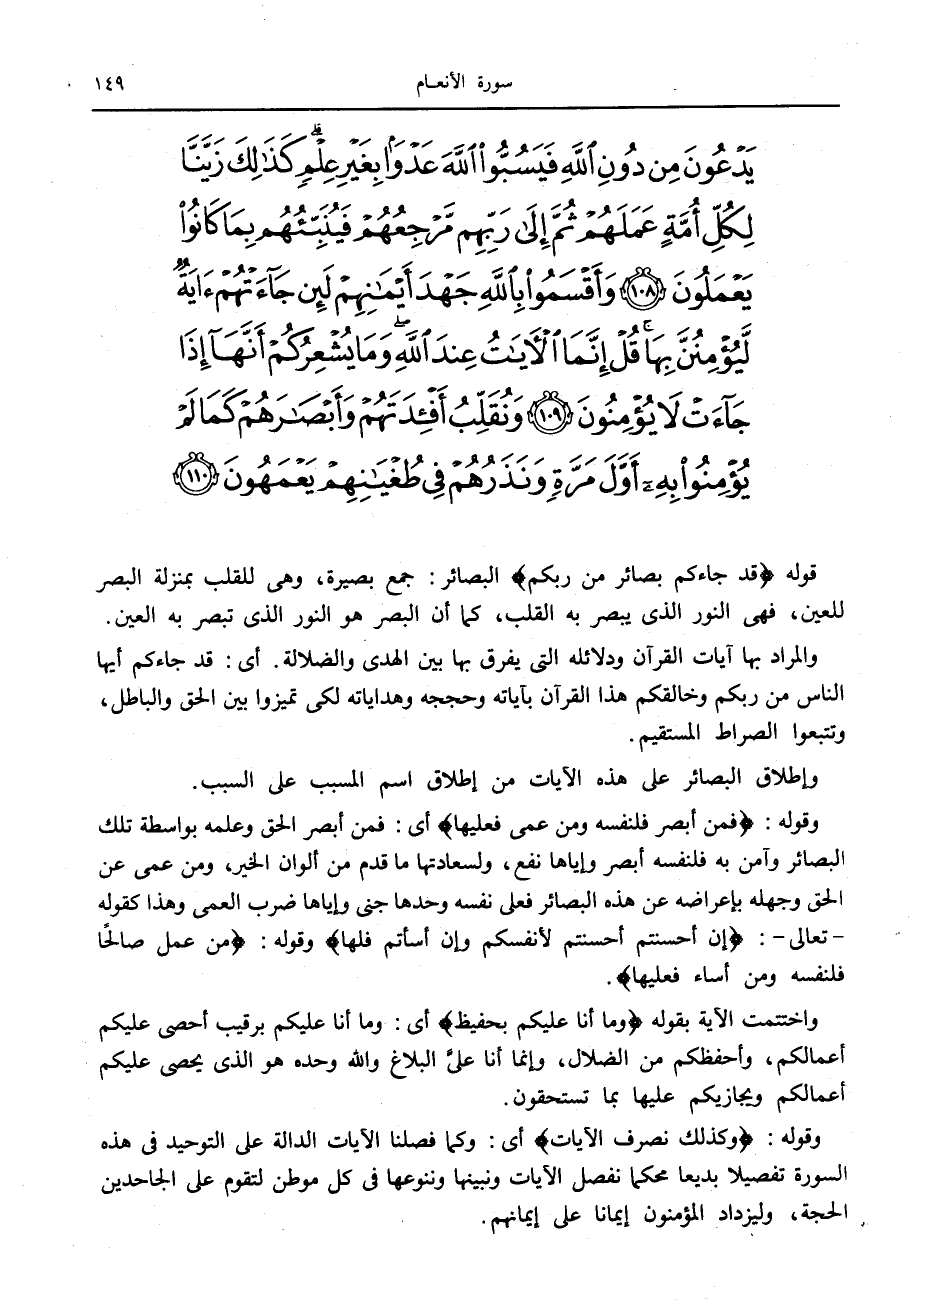 سورة الأنعـام ١٤٩
يَدْعُونَ مِن دُونِ ٱللَّهِ فَيَسُبُّوا۟ ٱللَّهَ عَدْوًۢا بِغَيْرِ عِلْمٍۗ كَذَٰلِكَ زَيَّنَّا
لِكُلِّ أُمَّةٍ عَمَلَهُمْ ثُمَّ إِلَىٰ رَبِّهِم مَّرْجِعُهُمْ فَيُنَبِّئُهُم بِمَا كَانُوا۟
يَعْمَلُونَ ﴿١٠٨﴾ وَأَقْسَمُوا۟ بِٱللَّهِ جَهْدَ أَيْمَٰنِهِمْ لَئِن جَآءَتْهُمْ ءَايَةٌ
لَّيُؤْمِنُنَّ بِهَاۚ قُلْ إِنَّمَا ٱلْأَيَٰتُ عِندَ ٱللَّهِۖ وَمَا يُشْعِرُكُمْ أَنَّهَآ إِذَا
جَآءَتْ لَا يُؤْمِنُونَ ﴿١٠٩﴾ وَنُقَلِّبُ أَفْـِٔدَتَهُمْ وَأَبْصَٰرَهُمْ كَمَا لَمْ
يُؤْمِنُوا۟ بِهِۦٓ أَوَّلَ مَرَّةٍ وَنَذَرُهُمْ فِى طُغْيَٰنِهِمْ يَعْمَهُونَ ﴿١١٠﴾
قوله ﴿قد جاءكم بصائر من ربكم﴾ البصائر : جمع بصيرة، وهى للقلب بمنزلة البصر
للعين، فهى النور الذى يبصر به القلب، كما أن البصر هو النور الذى تبصر به العين.
والمراد بها آيات القرآن ودلائله التى يفرق بها بين الهدى والضلالة. أى : قد جاءكم أيها
الناس من ربكم وخالقكم هذا القرآن بآياته وحججه وهداياته لكى تميزوا بين الحق والباطل،
وتتبعوا الصراط المستقيم.
وإطلاق البصائر على هذه الآيات من إطلاق اسم المسبب على السبب.
وقوله : ﴿فمن أبصر فلنفسه ومن عمى فعليها﴾ أى : فمن أبصر الحق وعلمه بواسطة تلك
البصائر وآمن به فلنفسه أبصر وإياها نفع، ولسعادتها ما قدم من ألوان الخير، ومن عمى عن
الحق وجهله بإعراضه عن هذه البصائر فعلى نفسه وحدها جنى وإياها ضرب العمى وهذا كقوله
- تعالى - : ﴿إن أحسنتم أحسنتم لأنفسكم وإن أسأتم فلها﴾ وقوله : ﴿من عمل صالحًا
فلنفسه ومن أساء فعليها﴾.
واختتمت الآية بقوله ﴿وما أنا عليكم بحفيظ﴾ أى : وما أنا عليكم برقيب أحصى عليكم
أعمالكم، وأحفظكم من الضلال، وإنما أنا علىَّ البلاغ والله وحده هو الذى يحصى عليكم
أعمالكم ويجازيكم عليها بما تستحقون.
وقوله : ﴿وكذلك نصرف الآيات﴾ أى : وكما فصلنا الآيات الدالة على التوحيد فى هذه
السورة تفصيلا بديعا محكما نفصل الآيات ونبينها وننوعها فى كل موطن لتقوم على الجاحدين
الحجة، وليزداد المؤمنون إيمانا على إيمانهم.